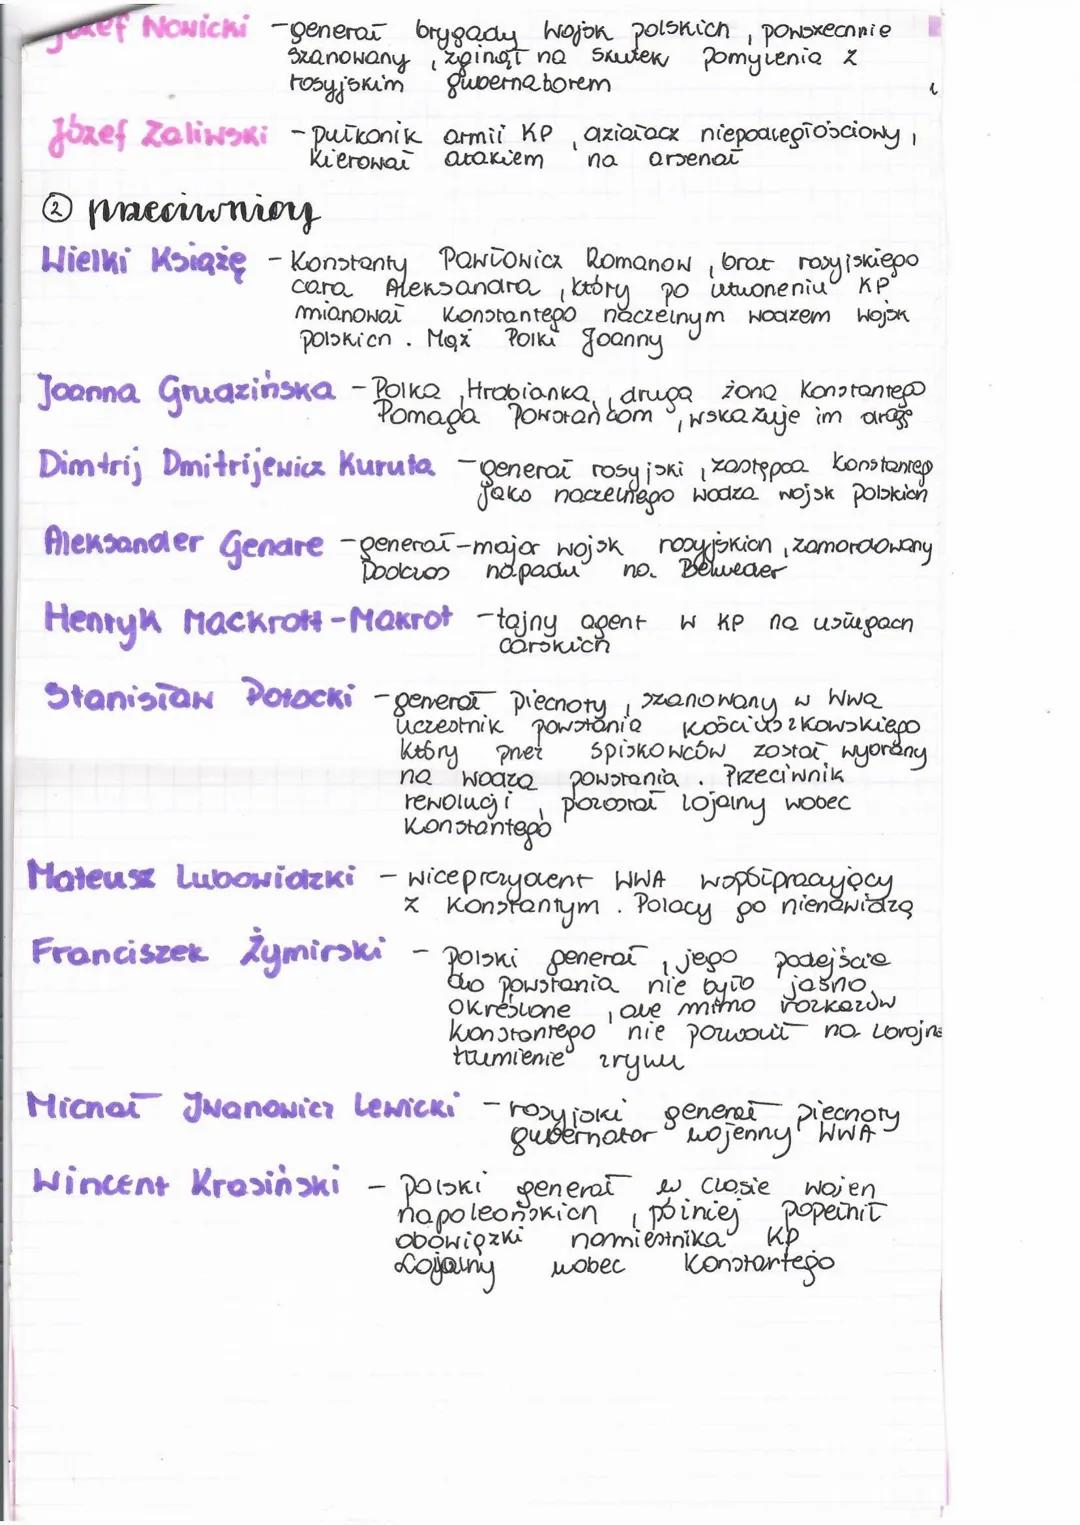 Józef Nowicki - generał brygady wojsk polskich, powszechnie
szanowany, zginął na skutek pomylenia z
rosyjskim gubernatorem
Józef Zaliwski - pułkonik armii KP, działacz niepodległościowy,
kierował atakiem na arsenał
② przeciwnicy
Wielki Książę - Konstanty Pawłowicz Romanow, brat rosyjskiego
cara Aleksandra, który po utworzeniu KP
mianował Konstantego naczelnym wodzem wojsk
polskich. Mąż Polki Joanny
Joanna Grudzińska - Polka, Hrabianka, druga żona Konstantego
Pomaga Powstańcom, wskazuje im drogę
Dimtrij Dmitrijewicz Kuruta - generał rosyjski, zastępca Konstantego
jako naczelnego wodza wojsk polskich
Aleksander Gendre - generał-major wojsk rosyjskich, zamordowany
podczas napadu na Belweder
Henryk Mackrott-Makrot - tajny agent w KP na usługach
carskich
Stanisław Potocki - generał piechoty, szanowany w WWA
uczestnik powstania kościuszkowskiego
który przez spiskowców został wybrany
na wodza powstania. Przeciwnik
rewolucji, pozostał lojalny wobec
Konstantego
Mateusz Lubowidzki - wiceprezydent WWA współpracujący
z Konstantym. Polacy go nienawidzą
Franciszek Żymirski - polski generał, jego podejście
do powstania nie było jasno
określone, ale mimo rozkazów
Konstantego nie pozwolił na zbrojne
tłumienie zrywu
Michał Iwanowicz Lewicki - rosyjski generał piechoty
gubernator wojenny WWA
Wincent Krasiński - polski generał w czasie wojen
napoleońskich, później popełnił
obowiązki namiestnika KP
Lojalny wobec Konstantego